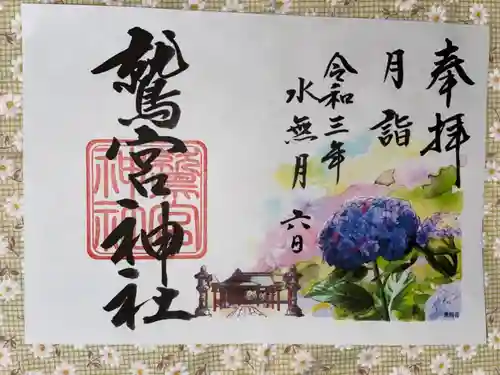 奉拝
月詣
令和三年
水無月六日
鷲宮神社
鷲宮
神社